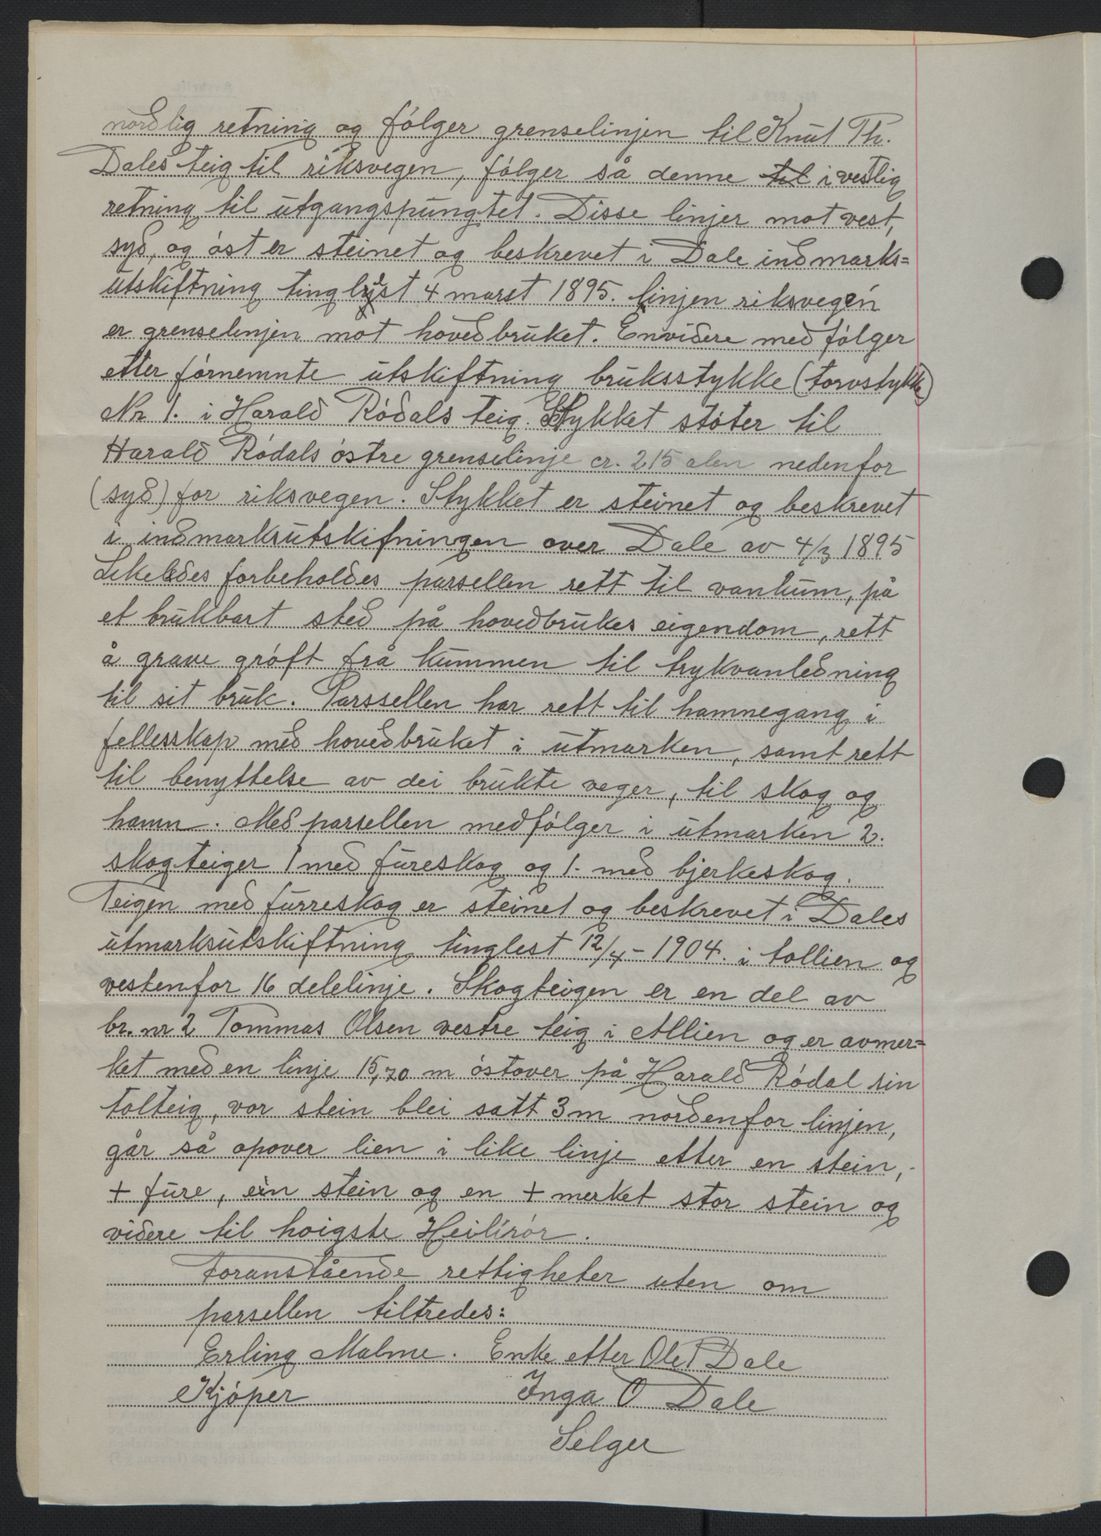 nordlig retning og følger grenselinjen til Knut Th.
Dales teig til riksvegen, følger så denne til i vestlig
retning til utgangspungtet. Disse linjer mot vest,
syd, og øst er steinet og beskrevet i Dale indmarks=
utskiftning tinglyst 4 marst 1895. linjen riksvegen
er grenselinjen mot hovedbruket. Envidere med følger
etter førnemnte utskiftning bruksstykke (torvstykke)
Nr 1. i Harald Rødals teig. Stykket støter til
Harald Rødals østre grenselinje cr. 215 alen nedenfor
(syd) for riksvegen. Stykket er steinet og beskrevet
i indmarkrutskifningen over Dale av 4/3 1895
Likeledes forbeholdes parsellen rett til vankum, på
et brukbart sted på hovedbrukes eigendom, rett
å grave grøft frå kummen til trykvanledning
til sit bruk. Parssellen har rett til hamnegang i
fellesskap med hovedbruket i utmarken, samt rett
til benyttelse av dei brukte veger, til skog og
hamn. Med parsellen medfølger i utmarken 2.
skogteiger 1 med fureskog og 1. med bjerkeskog.
Teigen med furreskog er steinet og beskrevet i Dales
utmarksutskiftning tinglest 12/4 - 1904. i tollien og
vestenfor 16 delelinje. Skogteigen er en del av
br. nr 2 Tommas Olsen vestre teig i Allien og er avmer=
ket med en linje 15,70 m østover på Harald Rødal sin
tolteig, vor stein blei satt 3 m nordenfor linjen,
går så opover lien i like linje etter en stein,
+ fure, ein stein og en + merket stor stein og
videre til hoigste Heilirør.
Foranstående rettigheter uten om
parsellen tiltredes:
Erling Malme. Enke etter Ole P Dale
Kjøper Inga O Dale
Selger